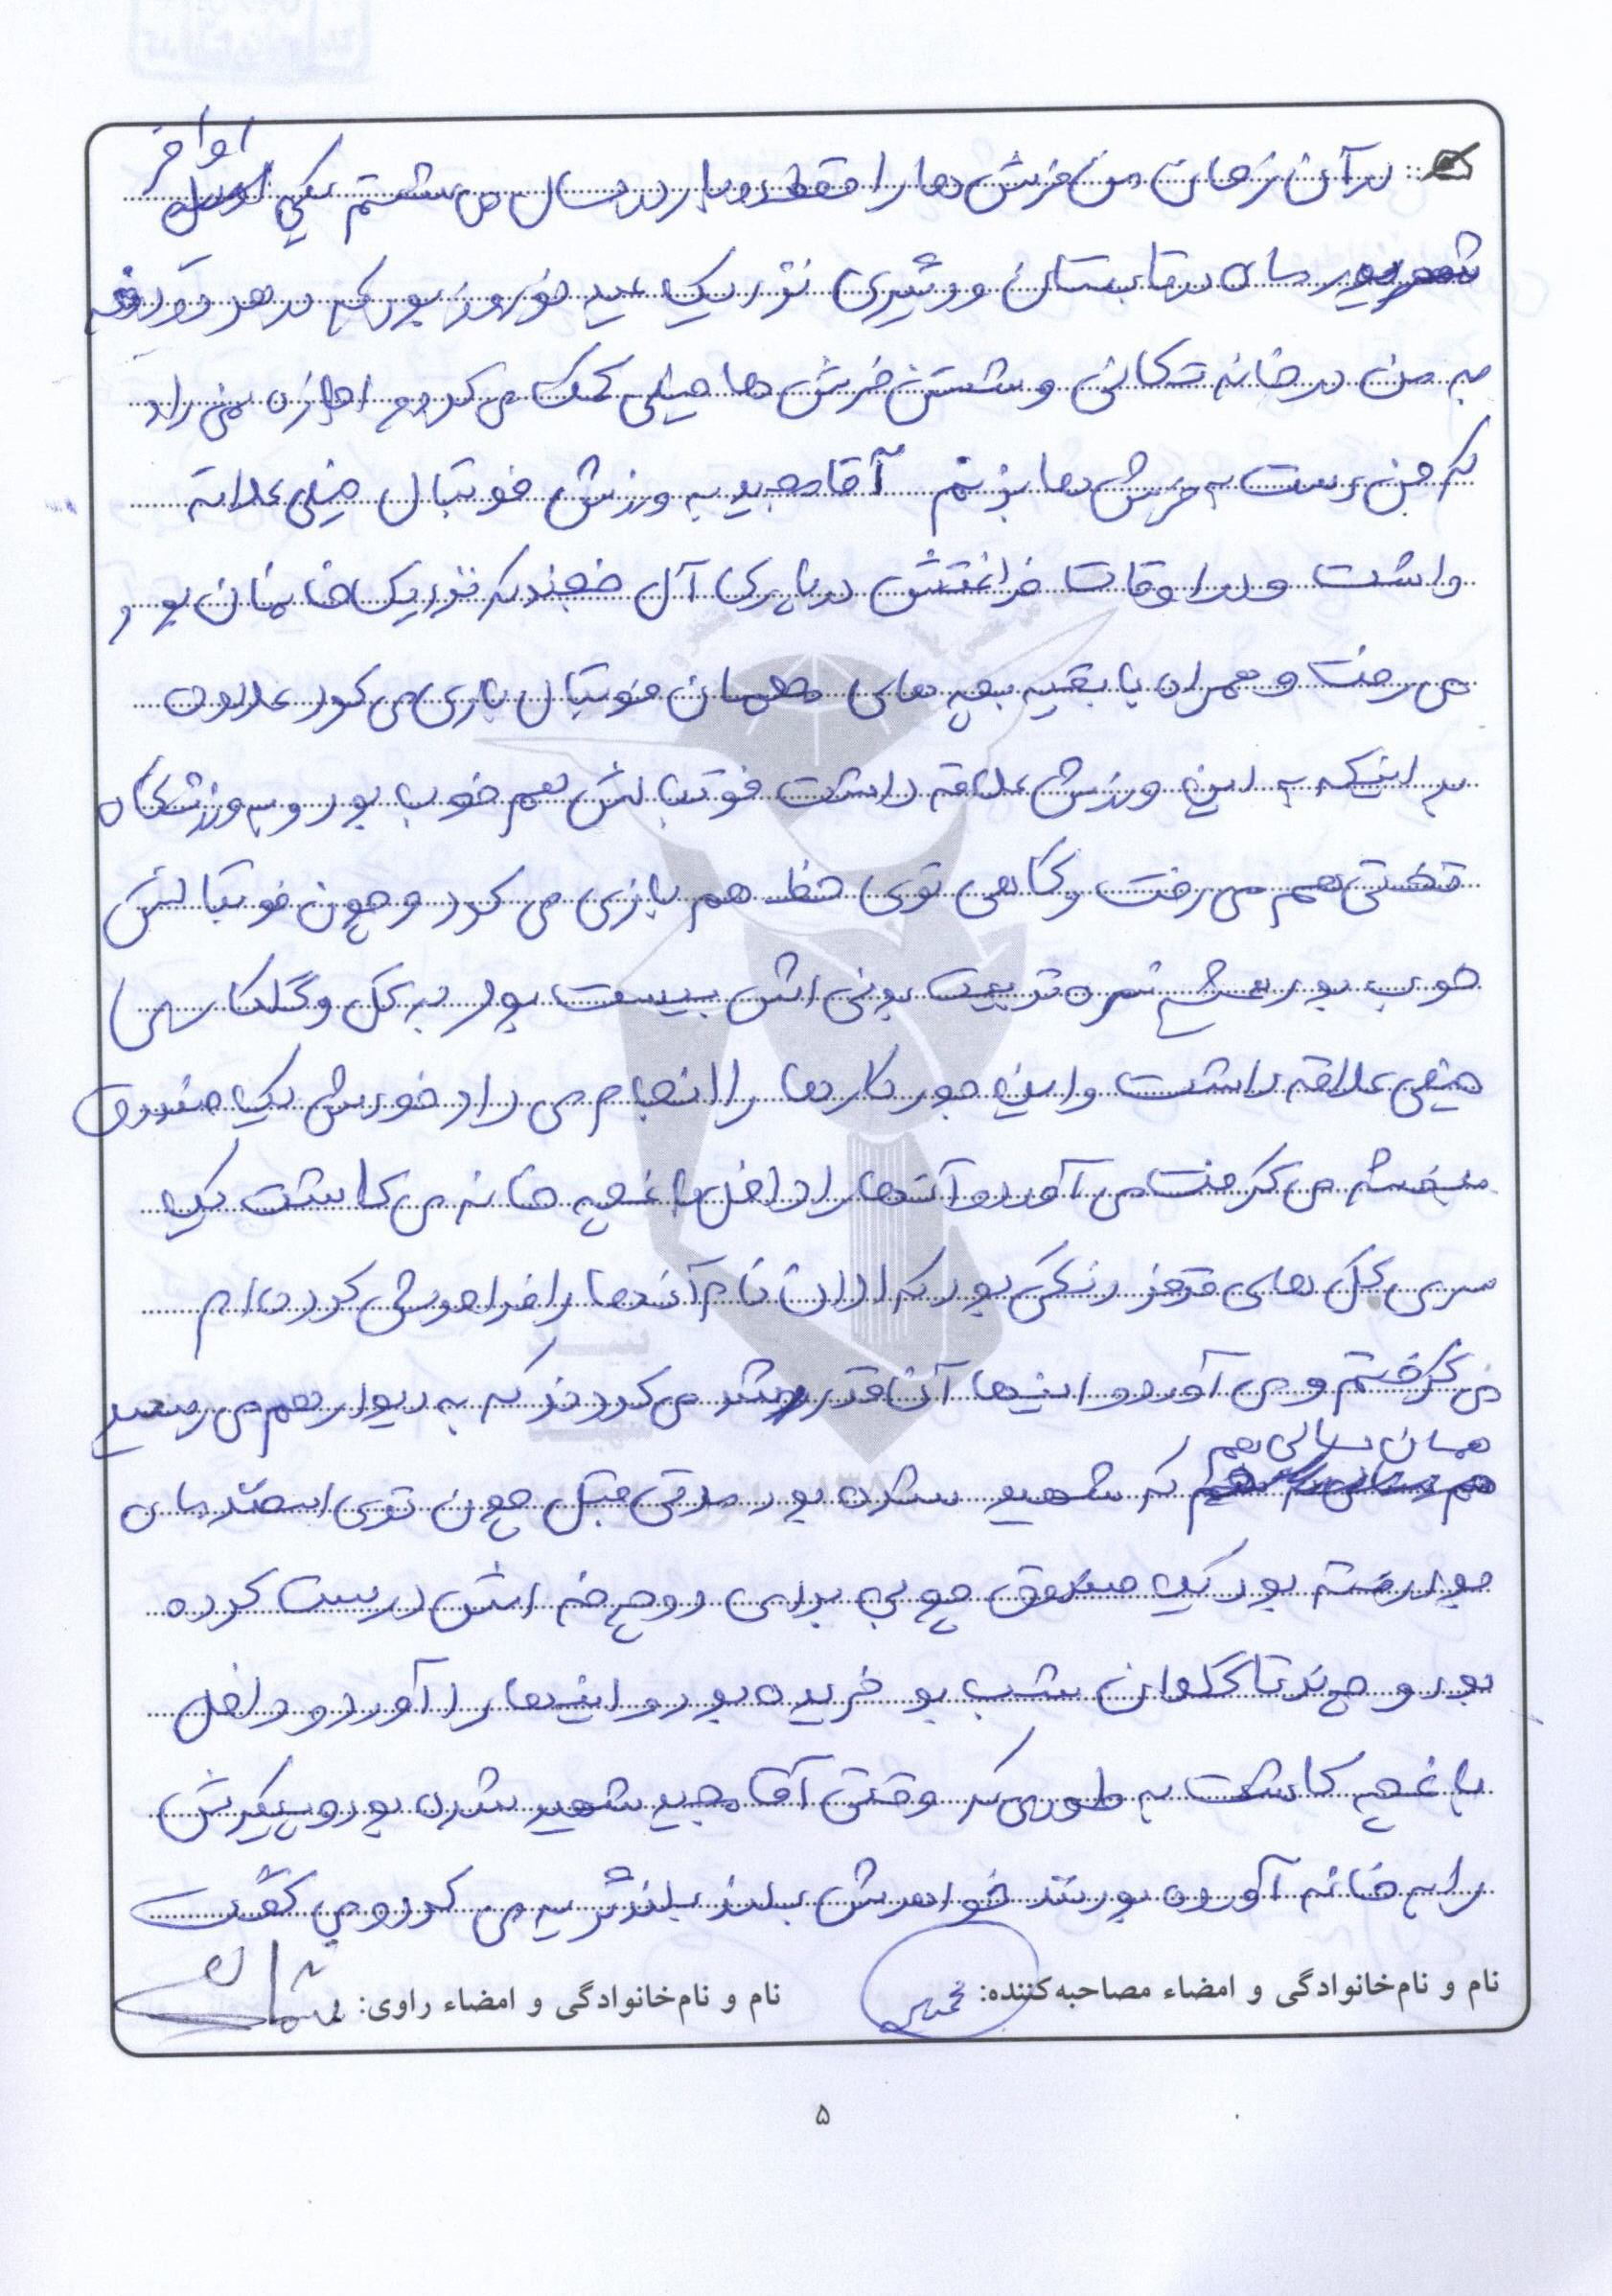 در آن زمان من فرش ها را فقط دوبار در سال می شستم یکی اواخر
شهریور ماه در تابستان و دیگری نزدیک عید نوروز بود که در هر دو دفعه
به من در خانه تکانی و شستن فرش ها خیلی کمک می کرد و اجازه نمی داد
که من دست به فرش ها بزنم آقا مجید به ورزش فوتبال خیلی علاقه
داشت و در اوقات فراغتش در پارک آل خجند که نزدیک خانمان بود
می رفت و همراه با بقیه بچه های فوتبال بازی می کرد علاوه
بر اینکه به این ورزش علاقه داشت فوتبالش هم خوب بود و به ورزشگاه
تختی هم می رفت و گاهی توی خط هم بازی می کرد و چون فوتبالش
خوب بود نمره تربیت بدنی اش بیست بود به گل و گلکاری
خیلی علاقه داشت و این جور کارها را انجام می داد خودش یک صندوق
بنفشه می گرفت می آورد و آنها را داخل باغچه خانه می کاشت یک
سری گل های قرمز رنگی بود که الان نام آنها را فراموش کرده ام
می گرفتم و می آورد و اینها آن قدر رشد می کردند که به دیوار هم می رسید
همان سالی هم که شهید شده بود مدتی قبل چون توی اسفند ماه
بود رفته بود یک صندوق چوبی برای دوچرخه اش درست کرده
بود و چند تا گلدان شب بو خریده بود و اینها را آورد و داخل
باغچه کاشت به طوری که وقتی آقا مجید شهید شده بود و پیکرش
را به خانه آورده بودند خواهرش بلند بلند گریه می کرد و می گفت
نام و نام‌خانوادگی و امضاء مصاحبه‌کننده:
نام و نام‌خانوادگی و امضاء راوی:
۵